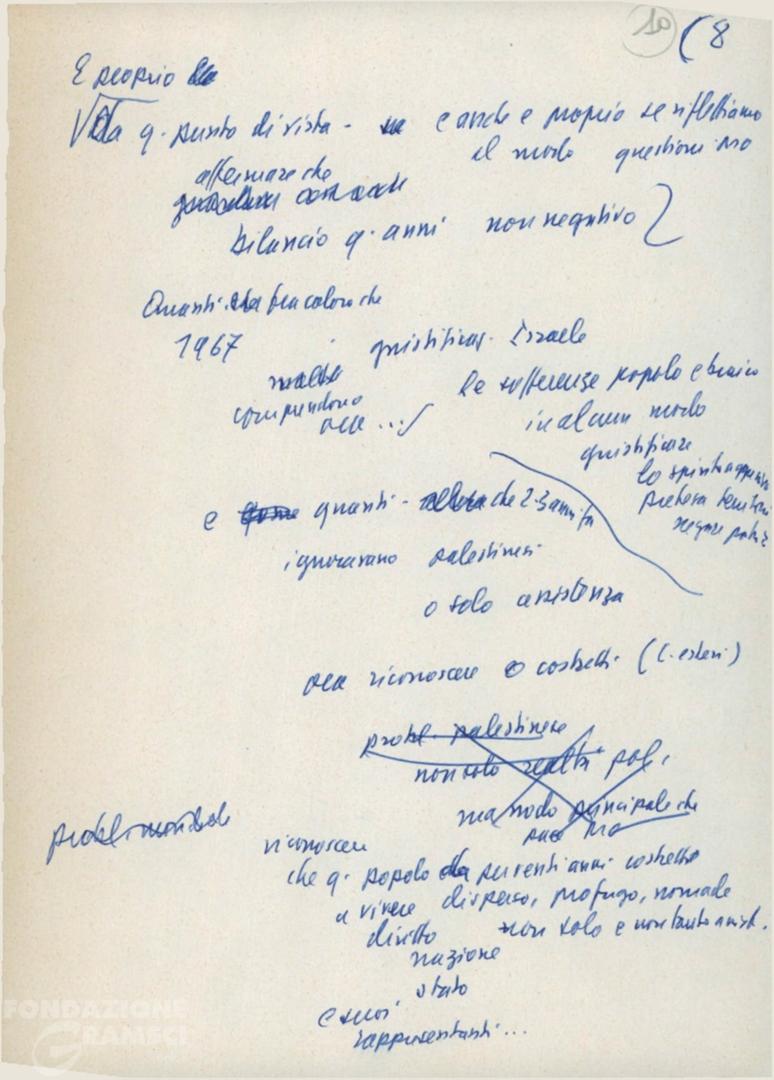 10 (8
E proprio
Da q. punto di vista - e anche e proprio se riflettiamo
al modo questione MO
affermare che
bilancio q. anni non negativo
Quanti fra coloro che
1967 giustificar. Israele
comprendono
ora ...
le sofferenze popolo ebraico
in alcun modo
giustificare
lo spirito
pretesa territori
negare
e quanti - che 2-3 anni fa
ignoravano palestinesi
o solo assistenza
ora riconoscere o costretti (C. esteri)
probl. palestinese
non solo realtà pol.
ma nodo principale che
pace MO
probl. mondiale
riconoscere
che q. popolo da parenti anni costretto
a vivere disperso, profugo, nomade
diritto non solo e non tanto assist.
nazione
stato
e suoi
rappresentanti...
FONDAZIONE
GRAMSCI